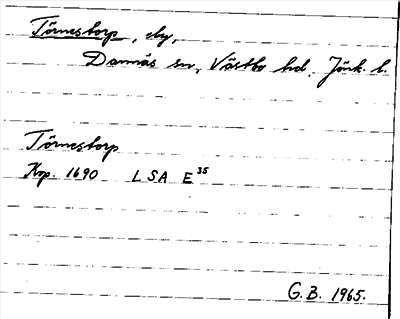 Törnestorp, by,
Dannäs sn, Västbo hd, Jönk. l.
Törnestorp
Kop. 1690 LSA E 35
G.B. 1965.